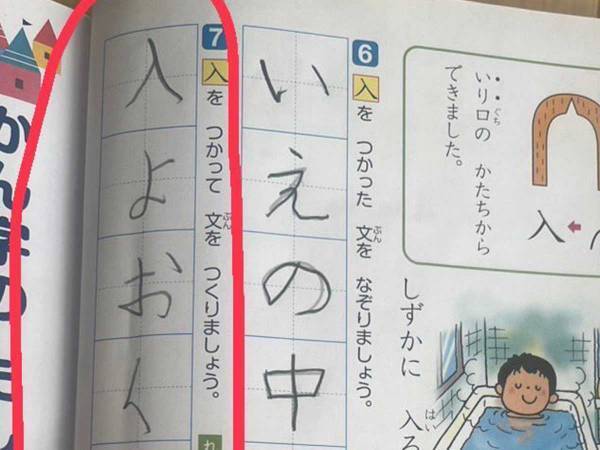 いり口の かたちから
できました。
ぐち
入
しずかに 入
はい
6 入を つかった 文を なぞりましょう。
ぶん
いえの中
7 入を つかって 文を つくりましょう。
ぶん
れ
入よおく
かん字の